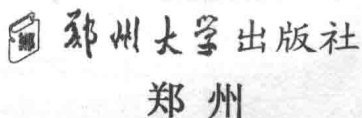 郑州大学出版社
郑州